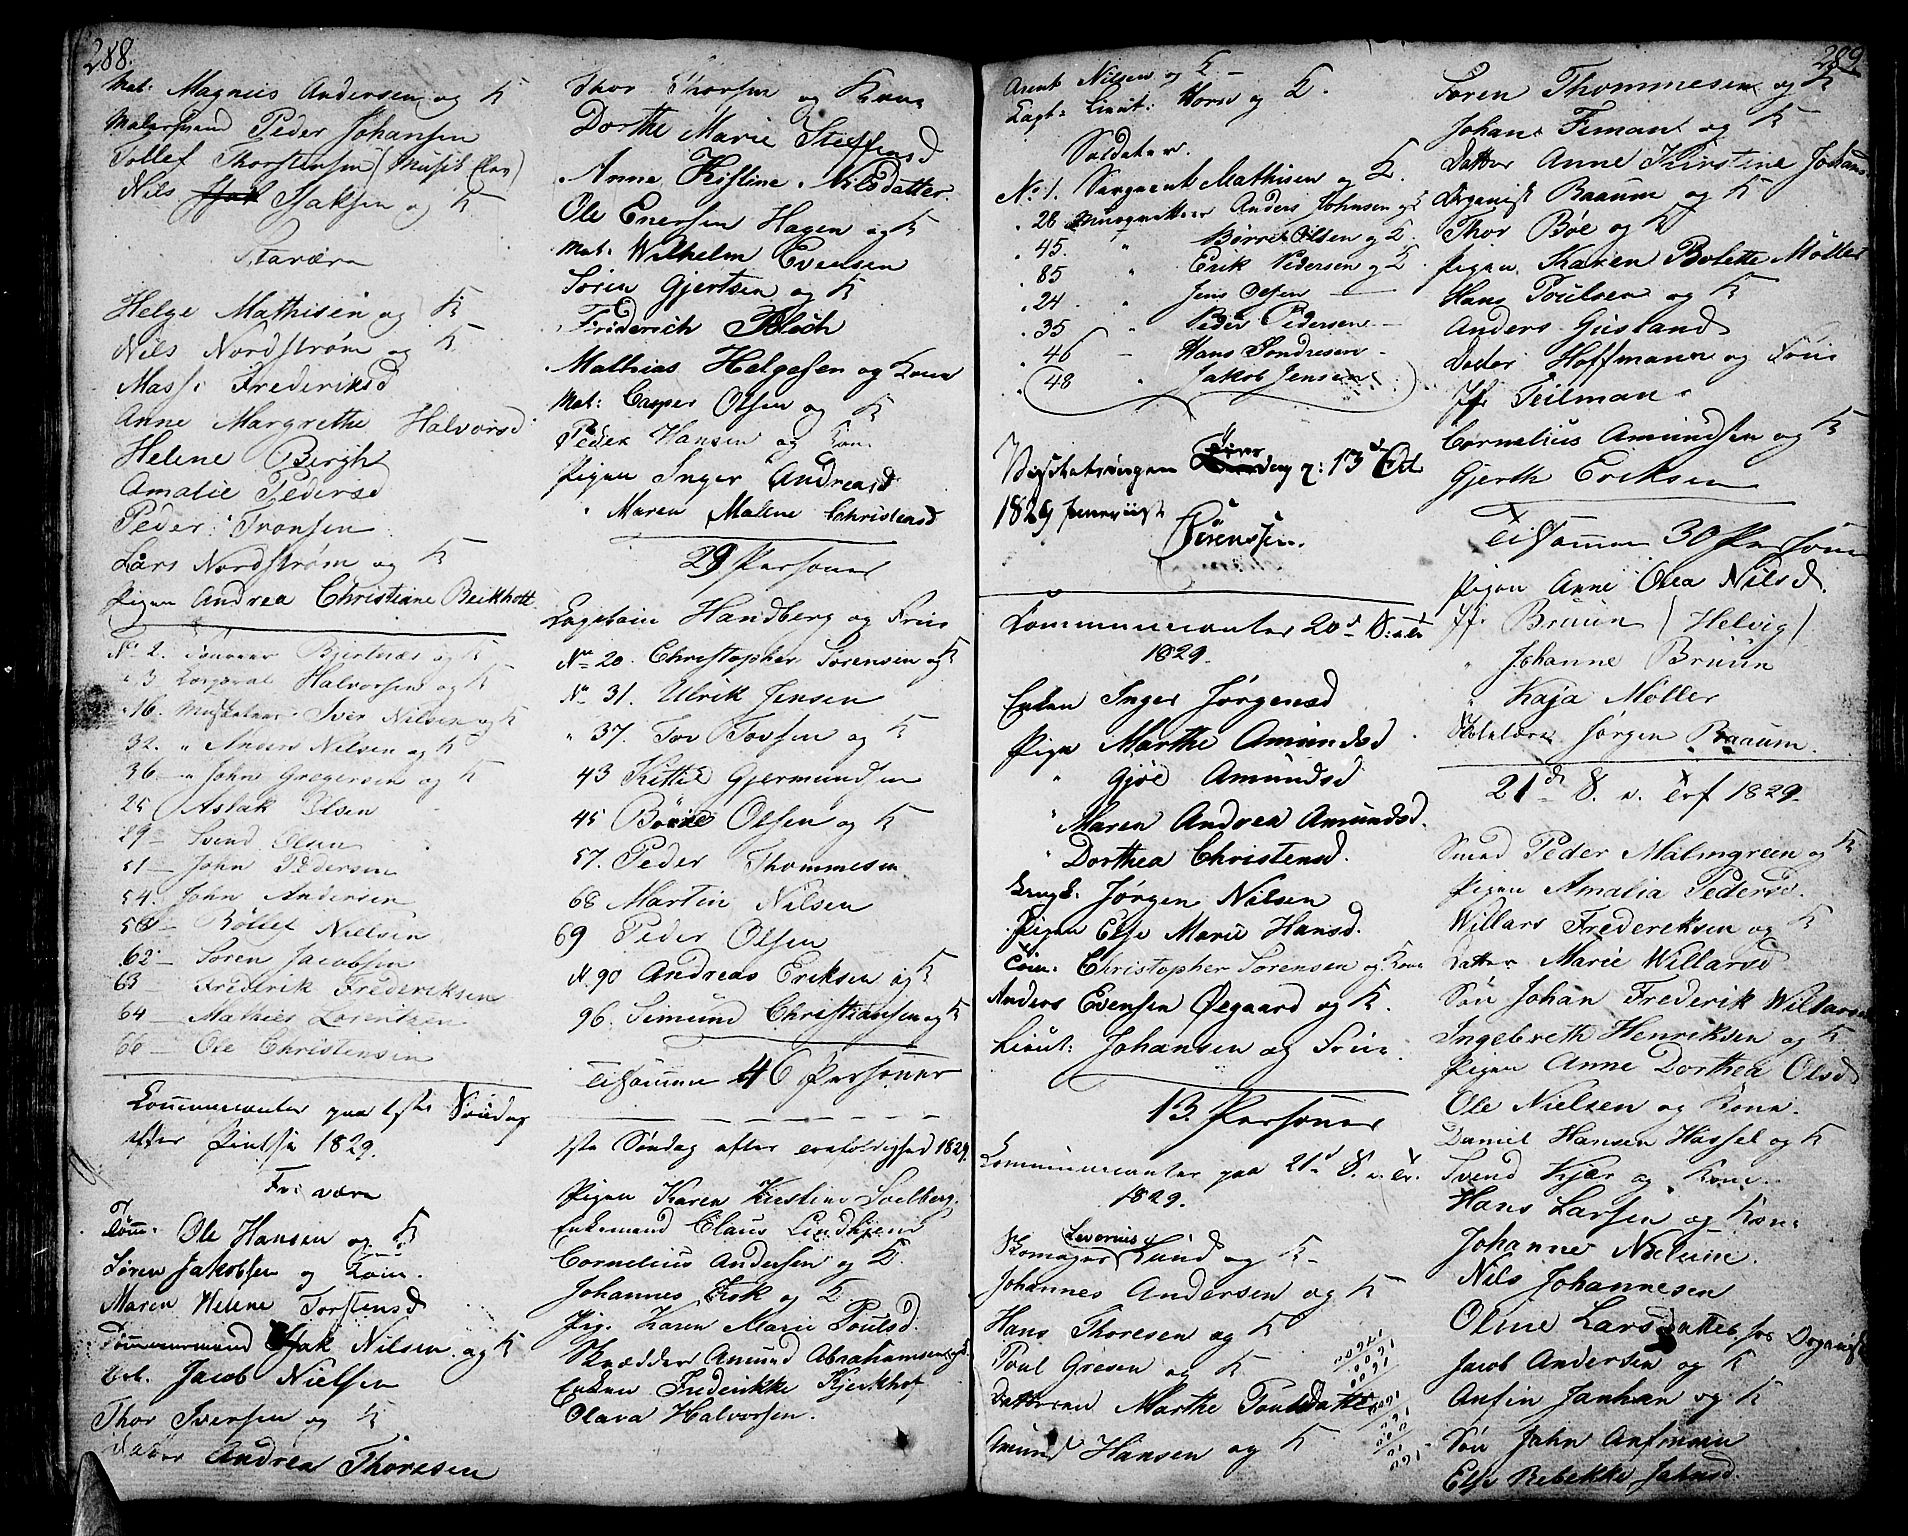 288.
Mat: Magnus Andersen og K
Malersvend Peder Johansen
Tollef Thorstensen (Musik Cor)
Nils Isaksen og K
Helge Mathisen og K
Nils Nordstrøm og K
Mass: Frederiksd
Anne Margrethe Halvorsd
Helene Bergh
Amalie Pedersd
Peder Tronsen
Lars Nordstrøm og K
Pigen Andrea Christiane Beikholt
No 2. Bjertnæs og K
" 3 Corporal Halvorsen og K
" 16. Musketeer Iver Nilsen og K
32. " Anders Nilsen og K
36 " John Gregersen og K
25 Aslak Olsen
29 Svend Olsen
51 John Pedersen
54. John Andersen
58 Rollef Nielsen
62 Søren Jacobsen
63 Frederik Frederiksen
64 Mathies Lorentzen
66 Ole Christensen
Communicanter paa 1ste Søndag
efter Pintse 1829.
Tøm: Ole Hansen og K
Søren Jakobsen og Kone.
Maren Helene Torstensd
Tømmermand Isak Nilsen og K
Arb. Jacob Nielsen
Thor Iversen og K
Datter Andrea Thoresen
Thor Thorsen og Kone
Dorthe Marie Steffensd
Anne Kistine Nilsdatter
Ole Enersen Hagen og K
Mat: Wilhelm Evensen
Søren Gjertsen og K
Friderich Bloch
Mathias Helgesen og Kone
Mat: Casper Olsen og K
Peder Hansen og Kone
Pigen Inger Andreasd
" Maren Malene Christensd
29 Personer
Capitain Handberg og Frue
No 20. Christopher Sørensen og K
No 31. Ulrik Jensen
" 37. Tov Tovsen og K
43 Kittil Gjermundsen
45 Børre Olsen og K
57. Peder Thommesen
68 Martin Nilsen
69 Peder Olsen
N. 90 Andreas Eriksen og K
96. Simund Christiansen og K
Tilsammen 46 Personer
1ste Søndag after trefoldighed 1829.
Pigen Karen Kirstine Soelberg.
Enkemand Claus Lindkjend
Cornelius Andersen og K.
Johannes Kok og K
Pig. Karen Marie Poulsd.
Skrædder Amund Abrahamsen og K.
Enken Frederikke Kjerkhof
Olava Halvorsen.
289.
Arent Nilsen og K
Capt: Lieut: Horse og K.
Soldater.
No 1. Sergeant Mathisen og K.
" 28 Musqvetteer Anders Johnsen og K
" 45. " Børre Olsen og K.
" 85 " Erik Pedersen og K
" 24 " Jens Olsen
" 35 " Peder Pedersen
" 46 Hans Sondresen
" 48 " Jakob Jensen
13 Oct
1829
Sørenssen.
Communicanter 20de S:
1829.
Enken Inger Jørgensd
Pigen Marthe Amundsd
" Gjøe Amundsd
" Maren Andrea Amundsd.
" Dorthea Christensd.
Jørgen Nilsen
Pigen Else Marie Hansd.
Tøm: Christopher Sørensen og Kone
Anders Evensen Øegaard og K.
Lieut: Johansen og Frue.
13 Personer
Communicanter paa 21de S. e. Tr.
1829.
Skomager Levorius Lund og K
Johannes Andersen og K
Hans Thoresen og K
Poul Gresen og K
Datteren Marthe Poulsdatter
Amund Hansen og K
Søren Thommesen og K
Johan Timan og K
Datter Anne Kirstine Johans
Organist Baaum og K
Thor Bøe og K
Pigen Karen Bolette Møller
Hans Poulsen og K
Anders Gusland
Doctor Hoffmann og Frue
Jfr Teilman
Cornelius Amundsen og K
Gjerth Eriksen
Tilsammen 30 Personer
Pigen Anne Olea Nilsd.
Jfr Bruun (Helvig)
" Johanne Bruun
" Kaja Møller
Skolelærer Jørgen Baaum.
21de S. e. Tref 1829.
Smed Peder Malmgreen og K
Pigen Amalia Pedersd.
Willars Frederiksen og K
Datter Marie Willarsd
Søn Johan Frederik Willarsen
Ingebreth Henriksen og K
Pigen Anne Dorthea Olsd
Ole Nielsen og Kone.
Daniel Hansen Hassel og K
Svend Kjær og Kone
Hans Larsen og Kone
Johanne Nielsine.
Nils Johannesen
Oline Larsdatter hos Organist
Jacob Andersen og K
Anfin Janhan og K
Søn John Anfinsen
Else Rebekke Johnsd.